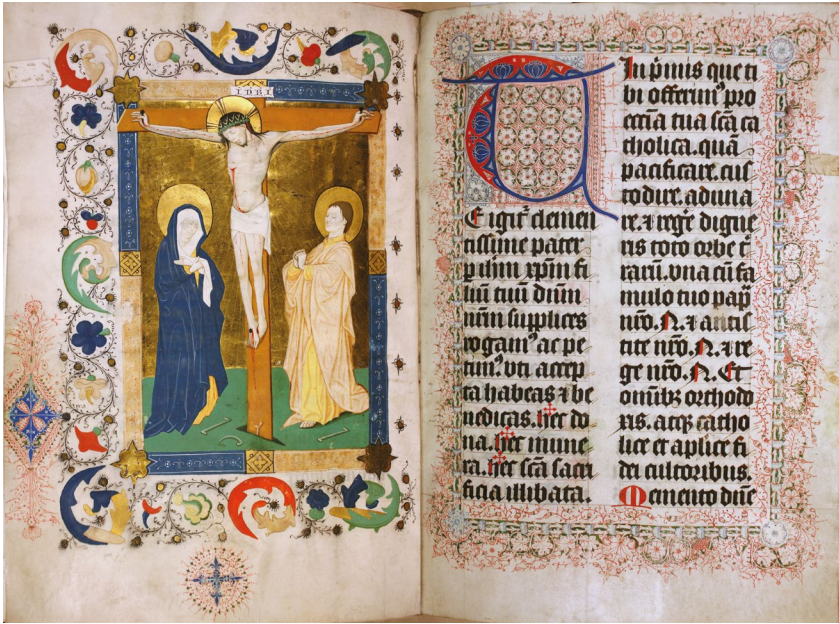 INRI
T
E igit᷑ clemen
tissime pater
p ih̄m xp̄m fi
lium tuū dn̄m
nr̄m supplices
rogamꝰ ac pe
timꝰ. vti accep
ta habeas ⁊ be
nedicas. hec do
na. hec mune
ra. hec scā sacri
ficia illibata.
In p̄mis que ti
bi offerimꝰ pro
ecc̄ia tua scā ca
tholica. quā
pacificare. cus
todire. aduna
re. ⁊ reḡe digne
ris toto orbe t̄
rarū. vna cū fa
mulo tuo papa
nr̄o. N. ⁊ antis
tite nr̄o. N. ⁊ re
ge nr̄o. N. Et
om̄ibꝫ orthodo
xis. atqꝫ catho
lice et apl̄ice fi
dei cultoribus.
Memento dn̄e